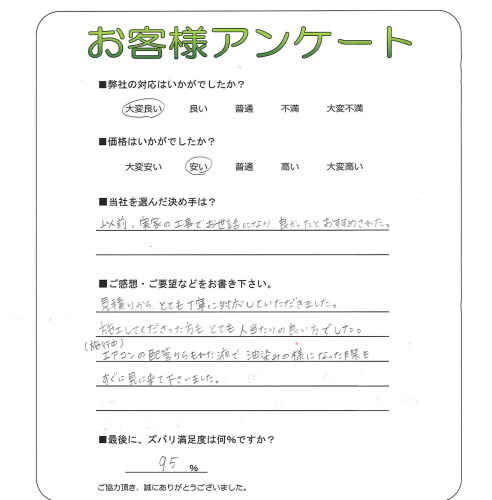 お客様アンケート
■弊社の対応はいかがでしたか？
大変良い 良い 普通 不満 大変不満
■価格はいかがでしたか？
大変安い 安い 普通 高い 大変高い
■当社を選んだ決め手は？
以前、実家の工事でお世話になり 良かったとおすすめされた。
■ご感想・ご要望などをお書き下さい。
見積りから とても丁寧に対応していただきました。
施工してくださった方も とても人当たりの良い方でした。
(施行中)
エアコンの配管からもれた液で 油染みの様になった際も
すぐに見に来て下さいました。
■最後に、ズバリ満足度は何%ですか？
95 %
ご協力頂き、誠にありがとうございました。